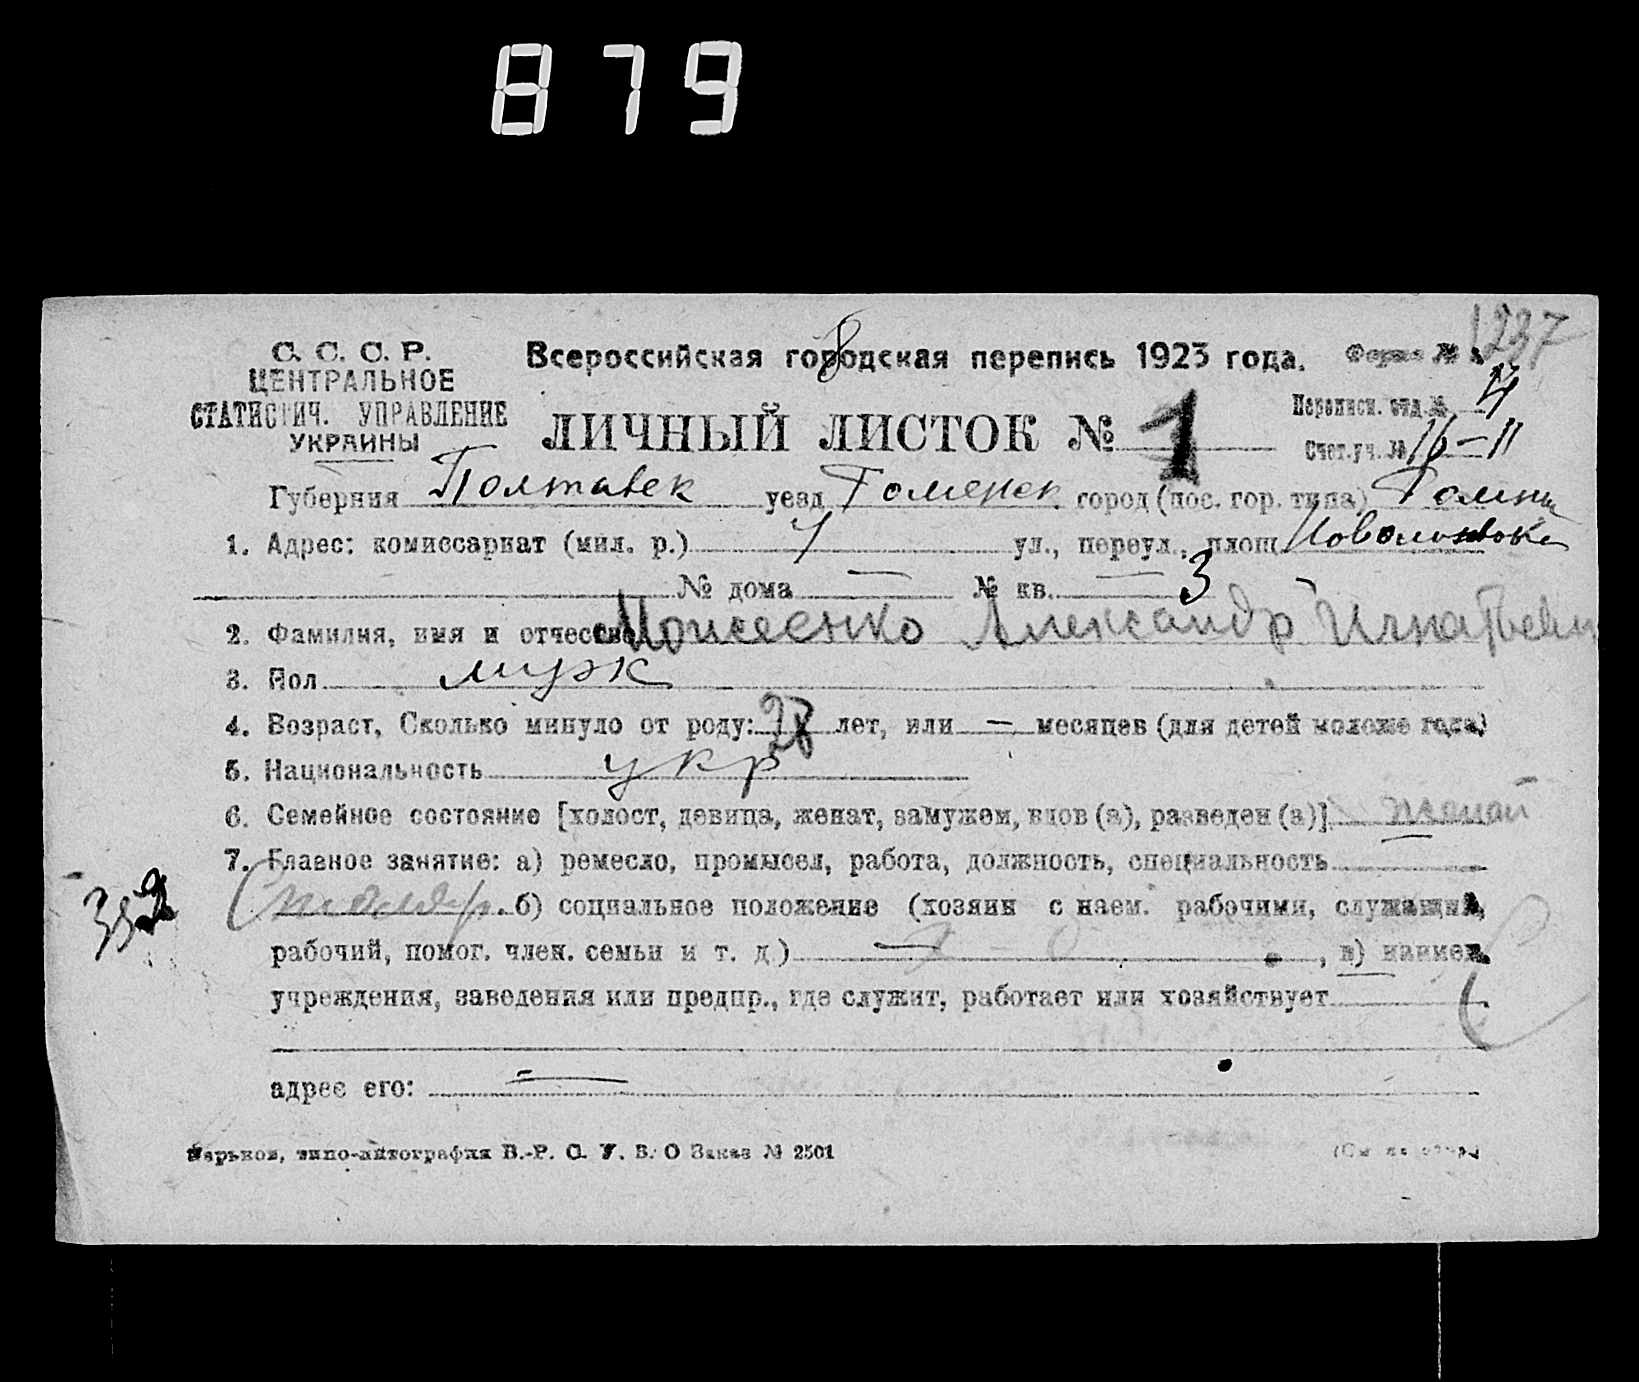 879
1237
С. С. С. Р.
ЦЕНТРАЛЬНОЕ
СТАТИСТИЧ. УПРАВЛЕНИЕ
УКРАИНЫ
Всероссийская городская перепись 1923 года. Форма №
8
Переписн. отд. № 4
ЛИЧНЫЙ ЛИСТОК № 1
Счет. уч. № 16-11
Губерния Полтавск уезд Роменск город (пос. гор. типа) Ромны
1. Адрес: комиссариат (мил. р.) ул., переул., площ.
№ дома — № кв. — 3
2. Фамилия, имя и отчество Моисеенко Александр Игнатьевич
3. Пол муж
4. Возраст, Сколько минуло от роду: лет, или — месяцев (для детей моложе года)
5. Национальность укр
6. Семейное состояние [холост, девица, женат, замужем, вдов (а), разведен (а)]
7. Главное занятие: а) ремесло, промысел, работа, должность, специальность
б) социальное положение (хозяин с наем. рабочими, служащий,
рабочий, помог. член. семьи и т. д) , в) наимен.
учреждения, заведения или предпр., где служит, работает или хозяйствует
адрес его: —
Харьков, типо-литография В.-Р. С. У. В. О Заказ № 2501